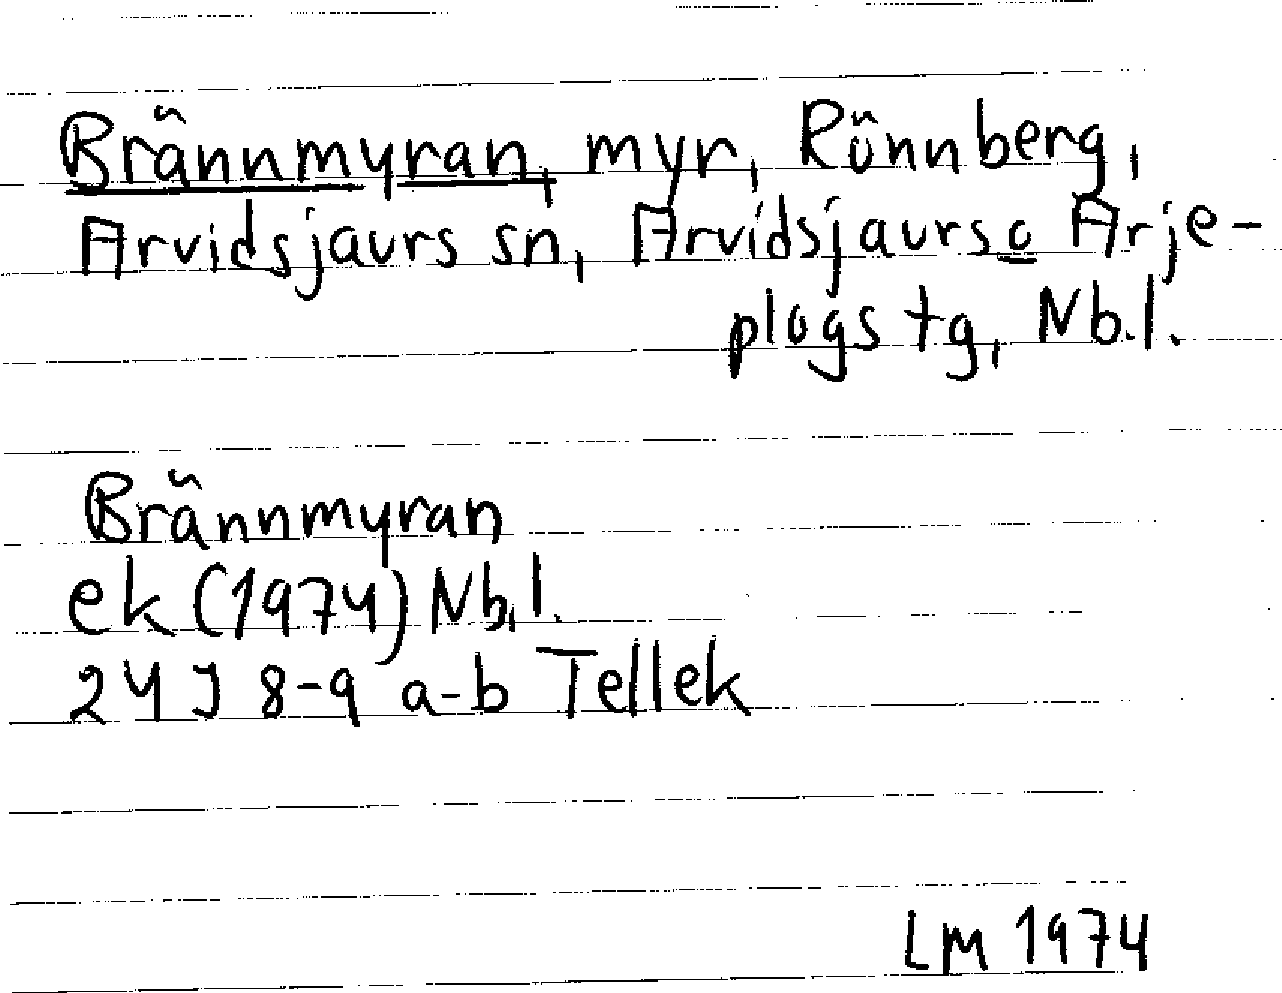 Brännmyran, myr, Rönnberg,
Arvidsjaurs sn, Arvidsjaurs o Arje-
plogs tg, Nb.l.
Brännmyran
ek (1974) Nb.l.
24 J 8-9 a-b Tellek
LM 1974